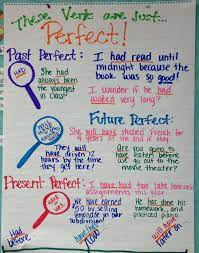 These Verbs are Just...
Perfect!
Past Perfect:
I had read until
midnight because the
book was so good!
HAD
She had
always been
the youngest
in class!
I wonder if he had
waited very long?
Future Perfect:
She will have studied French for
4 years at the end of May
They will
have driven 12
hours by the time
they get here!
Are you going to
have eaten before we
go out to the
movie theater?
Present Perfect:
I have had two
assignments this
She have earned
$0 by selling
lemonade in our
subdivision!
He has done his
homework, and
practiced piano.
Had
before
have/has
now
will have
later on